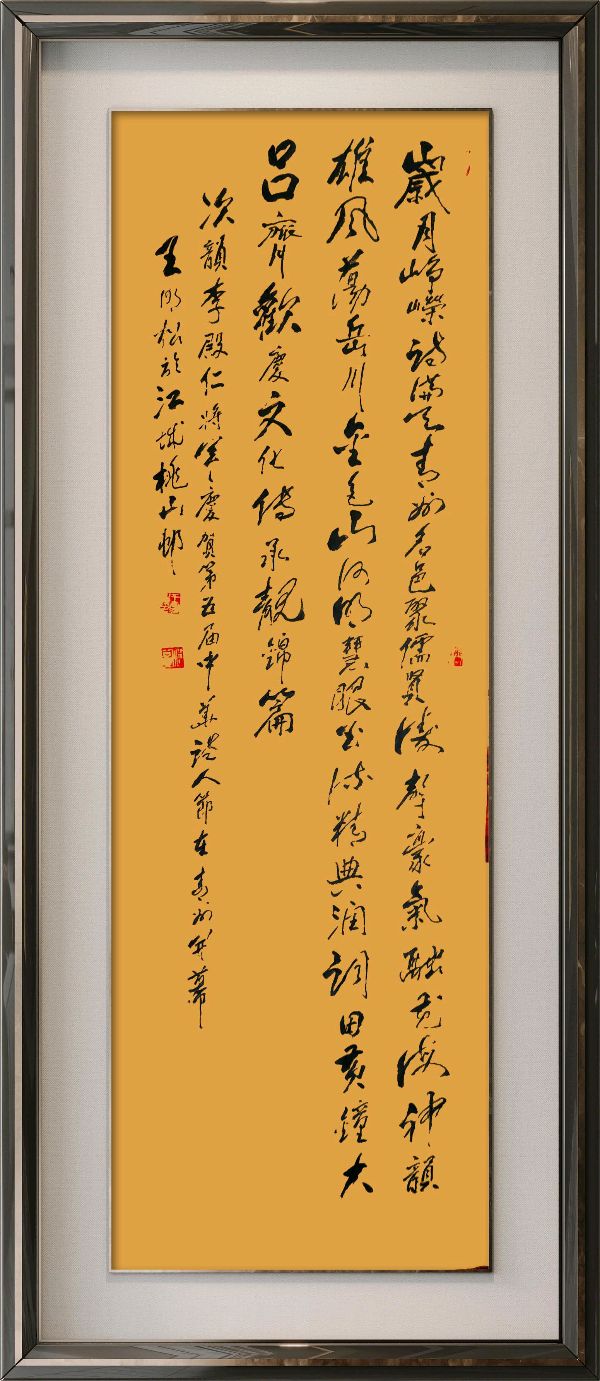 歲月崢嶸詩滿天青州名邑聚儒賢聲豪氣融海神韻
雄風蕩岳川金色山河明慧眼流精典潤詞田黃鐘大
呂齊歡慶文化傳承靚錦篇
次韻李殿仁將軍慶賀第五届中華詩人節在青州開幕
王明松於江城桃山邨